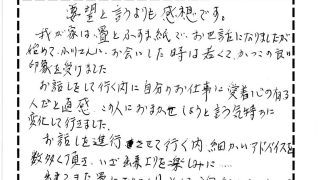 要望と言うよりも感想です。
我が家は、畳とふすま紙で、お世話になりましたが
始めて、小川さんに、お会いした時は若くて、かっこの良い
印象を受けました
お話しをして行く内に自分のお仕事に愛着心の有る
人だと直感 この人におまかせしようと言う気持ちに
変化して行きました。
お話しを進行させて行く内、細かいアドバイスを
数多くて頂き、いざ出来上りを楽しみに……